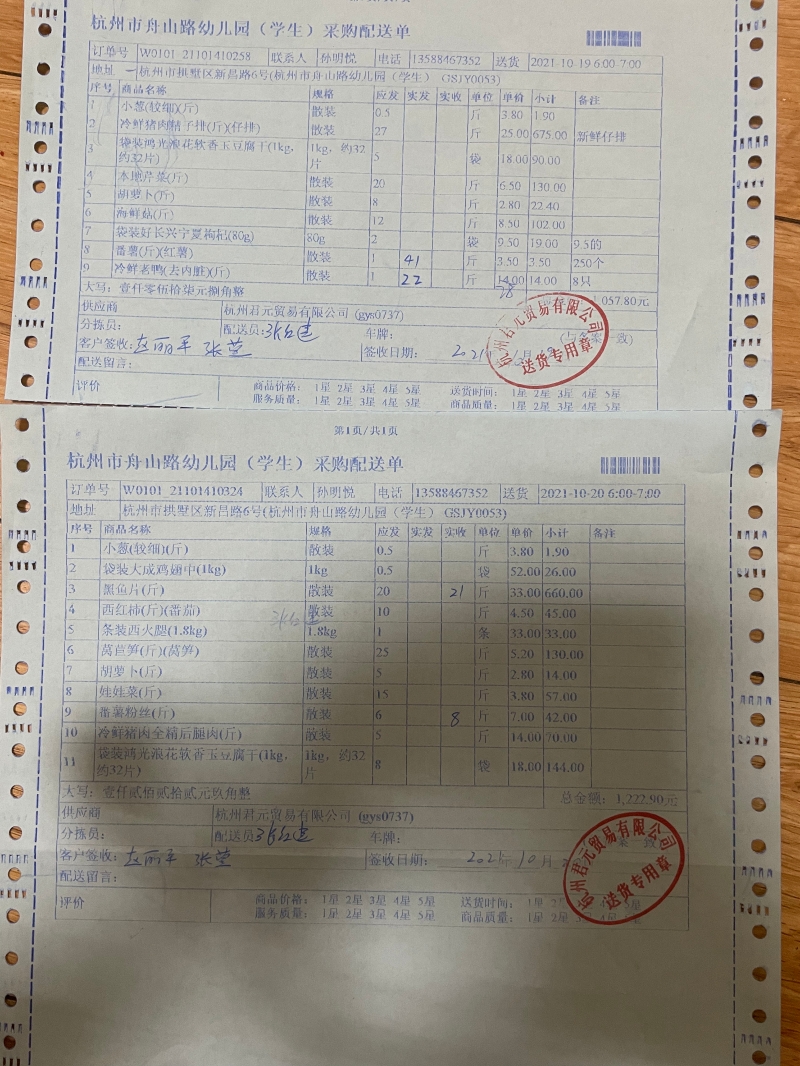 杭州市舟山路幼儿园（学生）采购配送单
订单号 W0101_21101410258 联系人 孙明悦 电话 13588467352 送货 2021-10-19 6:00-7:00
地址 杭州市拱墅区新昌路6号(杭州市舟山路幼儿园（学生） GSJY0053)
序号 商品名称 规格 应发 实发 实收 单位 单价 小计 备注
1 小葱(较细)(斤) 散装 0.5 斤 3.80 1.90
2 冷鲜猪肉精子排(斤)(仔排) 散装 27 斤 25.00 675.00 新鲜仔排
3 袋装鸿光浪花软香玉豆腐干(1kg, 约32片) 1kg, 约32片 5 袋 18.00 90.00
4 本地芹菜(斤) 散装 20 斤 6.50 130.00
5 胡萝卜(斤) 散装 8 斤 2.80 22.40
6 海鲜菇(斤) 散装 12 斤 8.50 102.00
7 袋装好长兴宁夏枸杞(80g) 80g 2 袋 9.50 19.00 9.5的
8 番薯(斤)(红薯) 散装 1 41 斤 3.50 3.50 250个
9 冷鲜老鸭(去内脏)(斤) 散装 1 22 斤 14.00 14.00 8只
28
大写：壹仟零伍拾柒元捌角整 1,057.80元
供应商 杭州君元贸易有限公司 (gys0737)
分拣员： 配送员: 车牌：
客户签收: 赵丽平 张莹 签收日期： 2021年
配送留言：
杭州君元贸易有限公司
送货专用章
评价 商品价格： 1星 2星 3星 4星 5星 送货时间： 1星 2星 3星 4星 5星
服务质量： 1星 2星 3星 4星 5星 商品质量： 1星 2星 3星 4星 5星
第1页/共1页
杭州市舟山路幼儿园（学生）采购配送单
订单号 W0101_21101410324 联系人 孙明悦 电话 13588467352 送货 2021-10-20 6:00-7:00
地址 杭州市拱墅区新昌路6号(杭州市舟山路幼儿园（学生） GSJY0053)
序号 商品名称 规格 应发 实发 实收 单位 单价 小计 备注
1 小葱(较细)(斤) 散装 0.5 斤 3.80 1.90
2 袋装大成鸡翅中(1kg) 1kg 0.5 袋 52.00 26.00
3 黑鱼片(斤) 散装 20 21 斤 33.00 660.00
4 西红柿(斤)(番茄) 散装 10 斤 4.50 45.00
5 条装西火腿(1.8kg) 1.8kg 1 条 33.00 33.00
6 莴苣笋(斤)(莴笋) 散装 25 斤 5.20 130.00
7 胡萝卜(斤) 散装 5 斤 2.80 14.00
8 娃娃菜(斤) 散装 15 斤 3.80 57.00
9 番薯粉丝(斤) 散装 6 8 斤 7.00 42.00
10 冷鲜猪肉全精后腿肉(斤) 散装 5 斤 14.00 70.00
11 袋装鸿光浪花软香玉豆腐干(1kg, 约32片) 1kg, 约32片 8 袋 18.00 144.00
大写：壹仟贰佰贰拾贰元玖角整 总金额：1,222.90元
供应商 杭州君元贸易有限公司 (gys0737)
分拣员： 配送员: 车牌：
客户签收: 赵丽平 张莹 签收日期： 2021年10月
配送留言：
杭州君元贸易有限公司
送货专用章
评价 商品价格： 1星 2星 3星 4星 5星 送货时间： 1星
服务质量： 1星 2星 3星 4星 5星 商品质量： 1星 2星